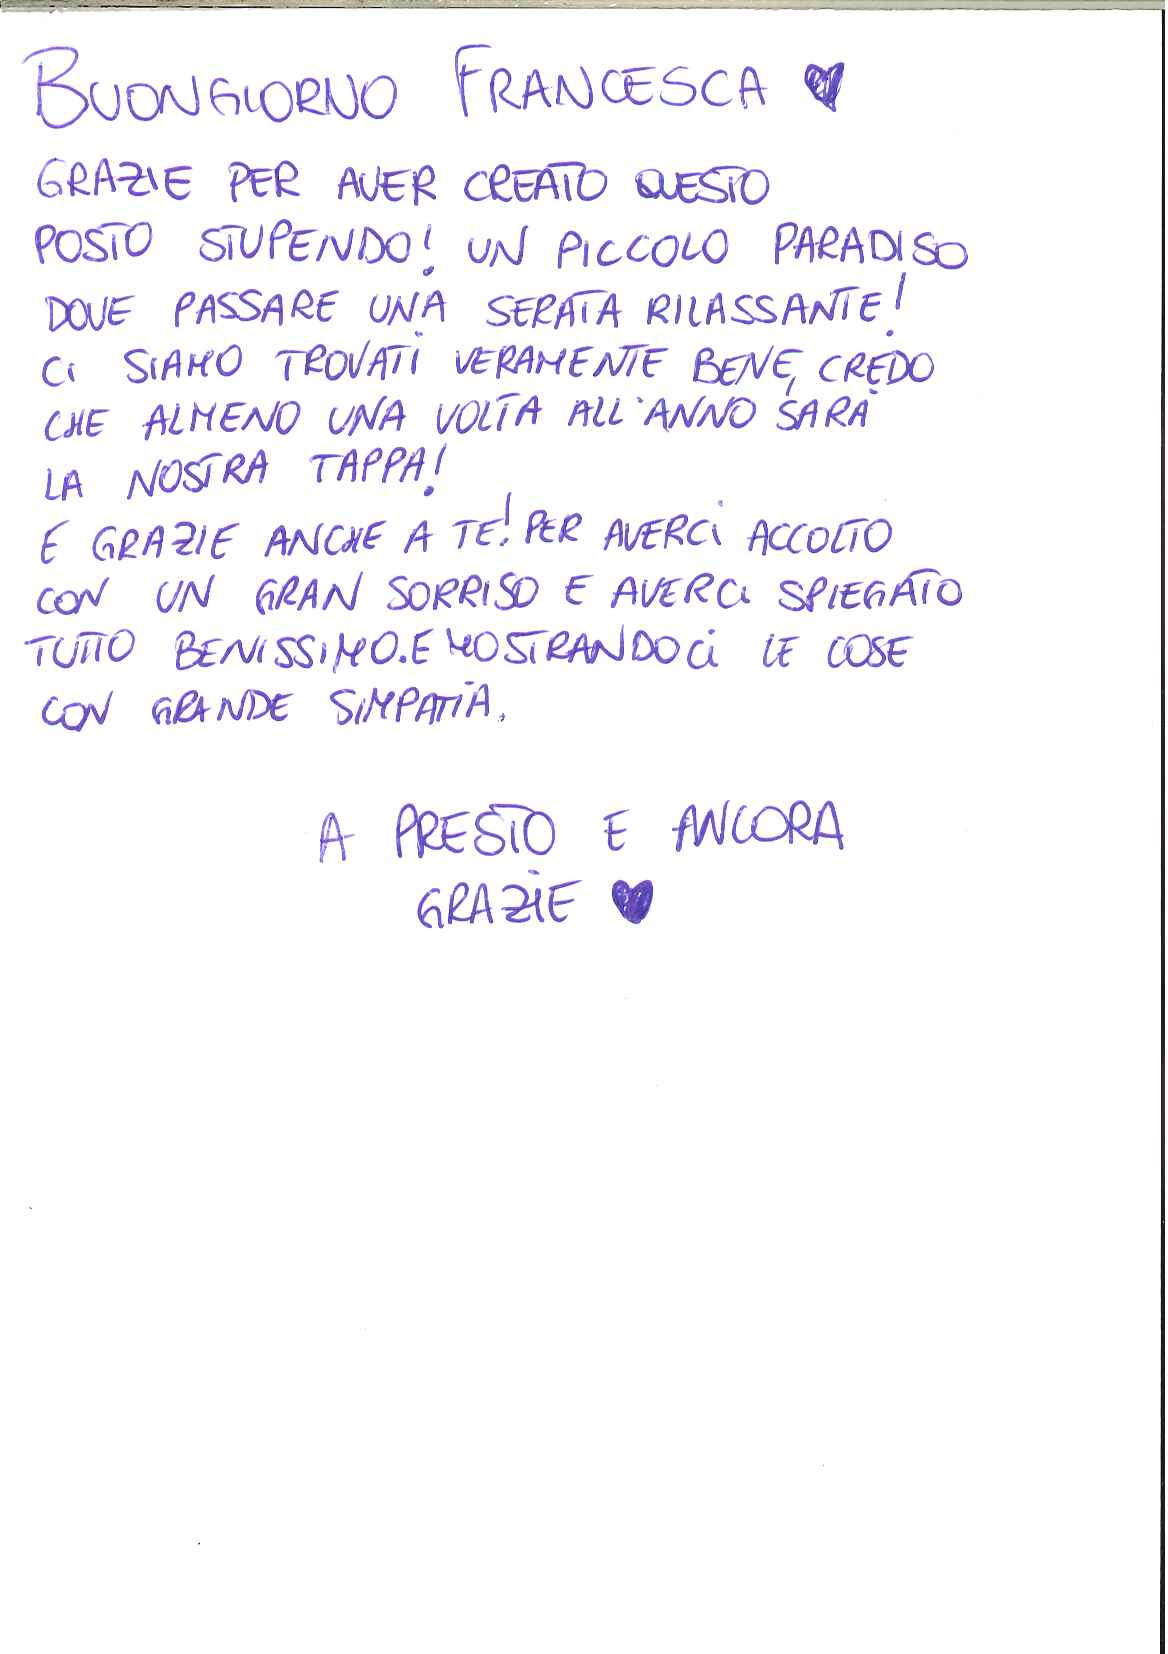 BUONGIORNO FRANCESCA ♥
GRAZIE PER AVER CREATO QUESTO
POSTO STUPENDO! UN PICCOLO PARADISO
DOVE PASSARE UNA SERATA RILASSANTE!
CI SIAMO TROVATI VERAMENTE BENE, CREDO
CHE ALMENO UNA VOLTA ALL'ANNO SARÀ
LA NOSTRA TAPPA!
E GRAZIE ANCHE A TE! PER AVERCI ACCOLTO
CON UN GRAN SORRISO E AVERCI SPIEGATO
TUTTO BENISSIMO. E MOSTRANDOCI LE COSE
CON GRANDE SIMPATIA.
A PRESTO E ANCORA
GRAZIE ♥